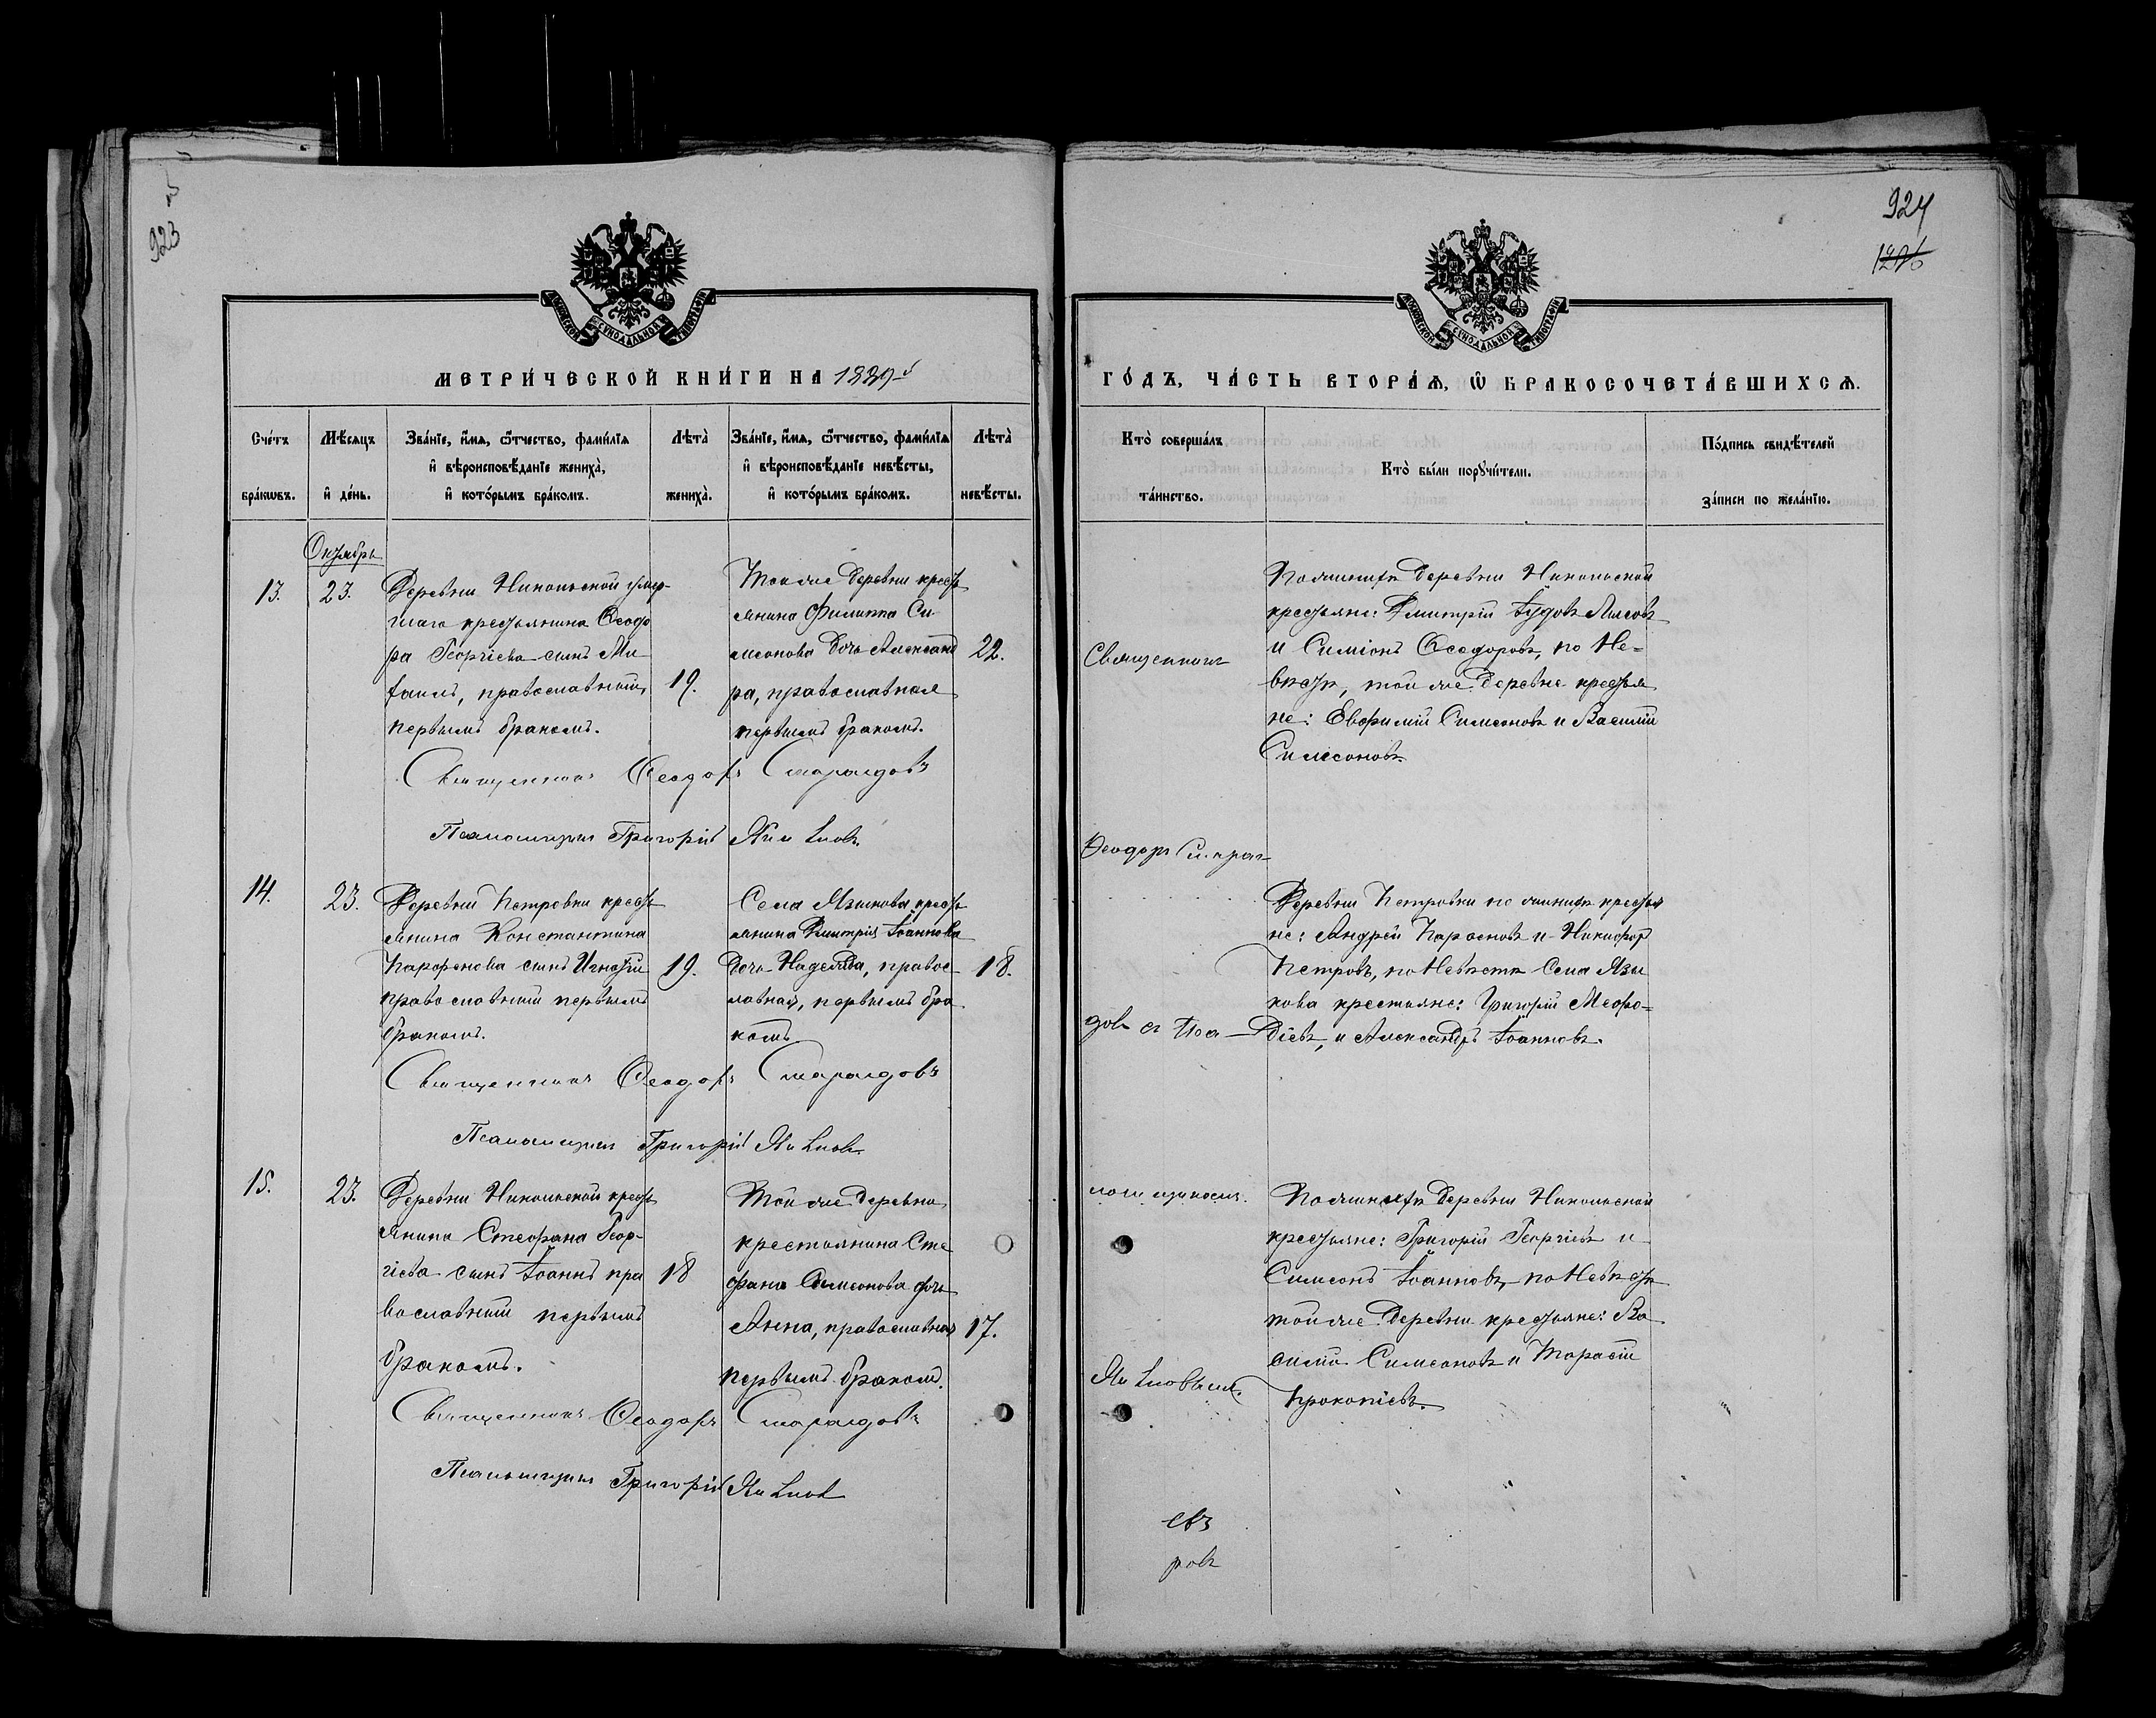 923
924
МОСКОВСКОЙ СУНОДАЛЬНОЙ ТИПОГРАФІИ
МОСКОВСКОЙ СУНОДАЛЬНОЙ ТИПОГРАФІИ
МЕТРИ́ЧЕСКОЙ КНИ́ГИ НА
ГО́ДЪ, ЧА́СТЬ ВТОРА́Ѧ, Ѽ БРАКОСОЧЕТА́ВШИХСѦ.
Сче́тъ бра́кѡвъ.
Мѣ́сяцъ и҆ де́нь.
Зва́нїе, и҆́мѧ, ѻ҆́тчество, фами́лїѧ
и҆ вѣроисповѣ́данїе жениха̀,
и҆ кото́рымъ бра́комъ.
Лѣта̀ жениха̀.
Зва́нїе, и҆́мѧ, ѻ҆́тчество, фами́лїѧ
и҆ вѣроисповѣ́данїе невѣ́сты,
и҆ кото́рымъ бра́комъ.
Лѣта̀ невѣ́сты.
Кто̀ соверша́лъ
та́инство.
Кто̀ бы́ли порꙋчи́тели.
По́дпись свидѣ́телей
за́писи по жела́нїю.
Октябрь
13.
23.
Деревни Никольской умер-
шаго крестьянина Ѳеодо
ра Георгіева сынъ Ми-
хаилъ, православный,
первымъ бракомъ.
19.
Той же деревни кресть
янина Филиппа Си-
меонова дочь Александ
ра, православная
первымъ бракомъ.
22.
Священникъ
По женихѣ деревни Никольской
крестьяне: Димитрій Іудовъ
и Симіонъ Ѳеодоровъ, по Не-
вѣстѣ, той же деревне крестья
не: Евфимій Симеоновъ и Василій
Симеоновъ.
Священникъ Ѳеодоръ Смарагдовъ
Псаломщикъ Григорій
Ѳеодоръ Смараг-
14.
23.
Деревни Петровки кресть
янина Константина
Парфенова сынъ Игнатій
православный первымъ
бракомъ.
19.
Села Языкова кресть
янина Димитрія Іоаннова
дочь Надежда, правос-
лавная, первымъ бра
комъ
18.
Деревни Петровки по женихѣ крестья
не: Андрей Парфеновъ и Никифоръ
Петровъ, по Невѣстѣ Села Язы
кова крестьяне: Григорій Мефо-
діевъ, и Александръ Іоанновъ.
довъ съ Пса-
Священникъ Ѳеодоръ Смарагдовъ
Псаломщикъ Григорій
15.
23.
Деревни Никольской кресть
янина Стефана Геор-
гіева сынъ Іоаннъ пра
вославный первымъ
бракомъ.
18
Той же деревни
крестьянина Сте
фана Симеонова дочь
Анна, православная
первымъ бракомъ.
17.
ломщикомъ.
По женихѣ деревни Никольской
крестьяне: Григорій Георгіевъ и
Симеонъ Іоанновъ, по Невѣстѣ
той же деревни крестьяне: Ва
силій Симеоновъ и Тарасій
Прокопіевъ.
Священникъ Ѳеодоръ Смарагдовъ
Псаломщикъ Григорій